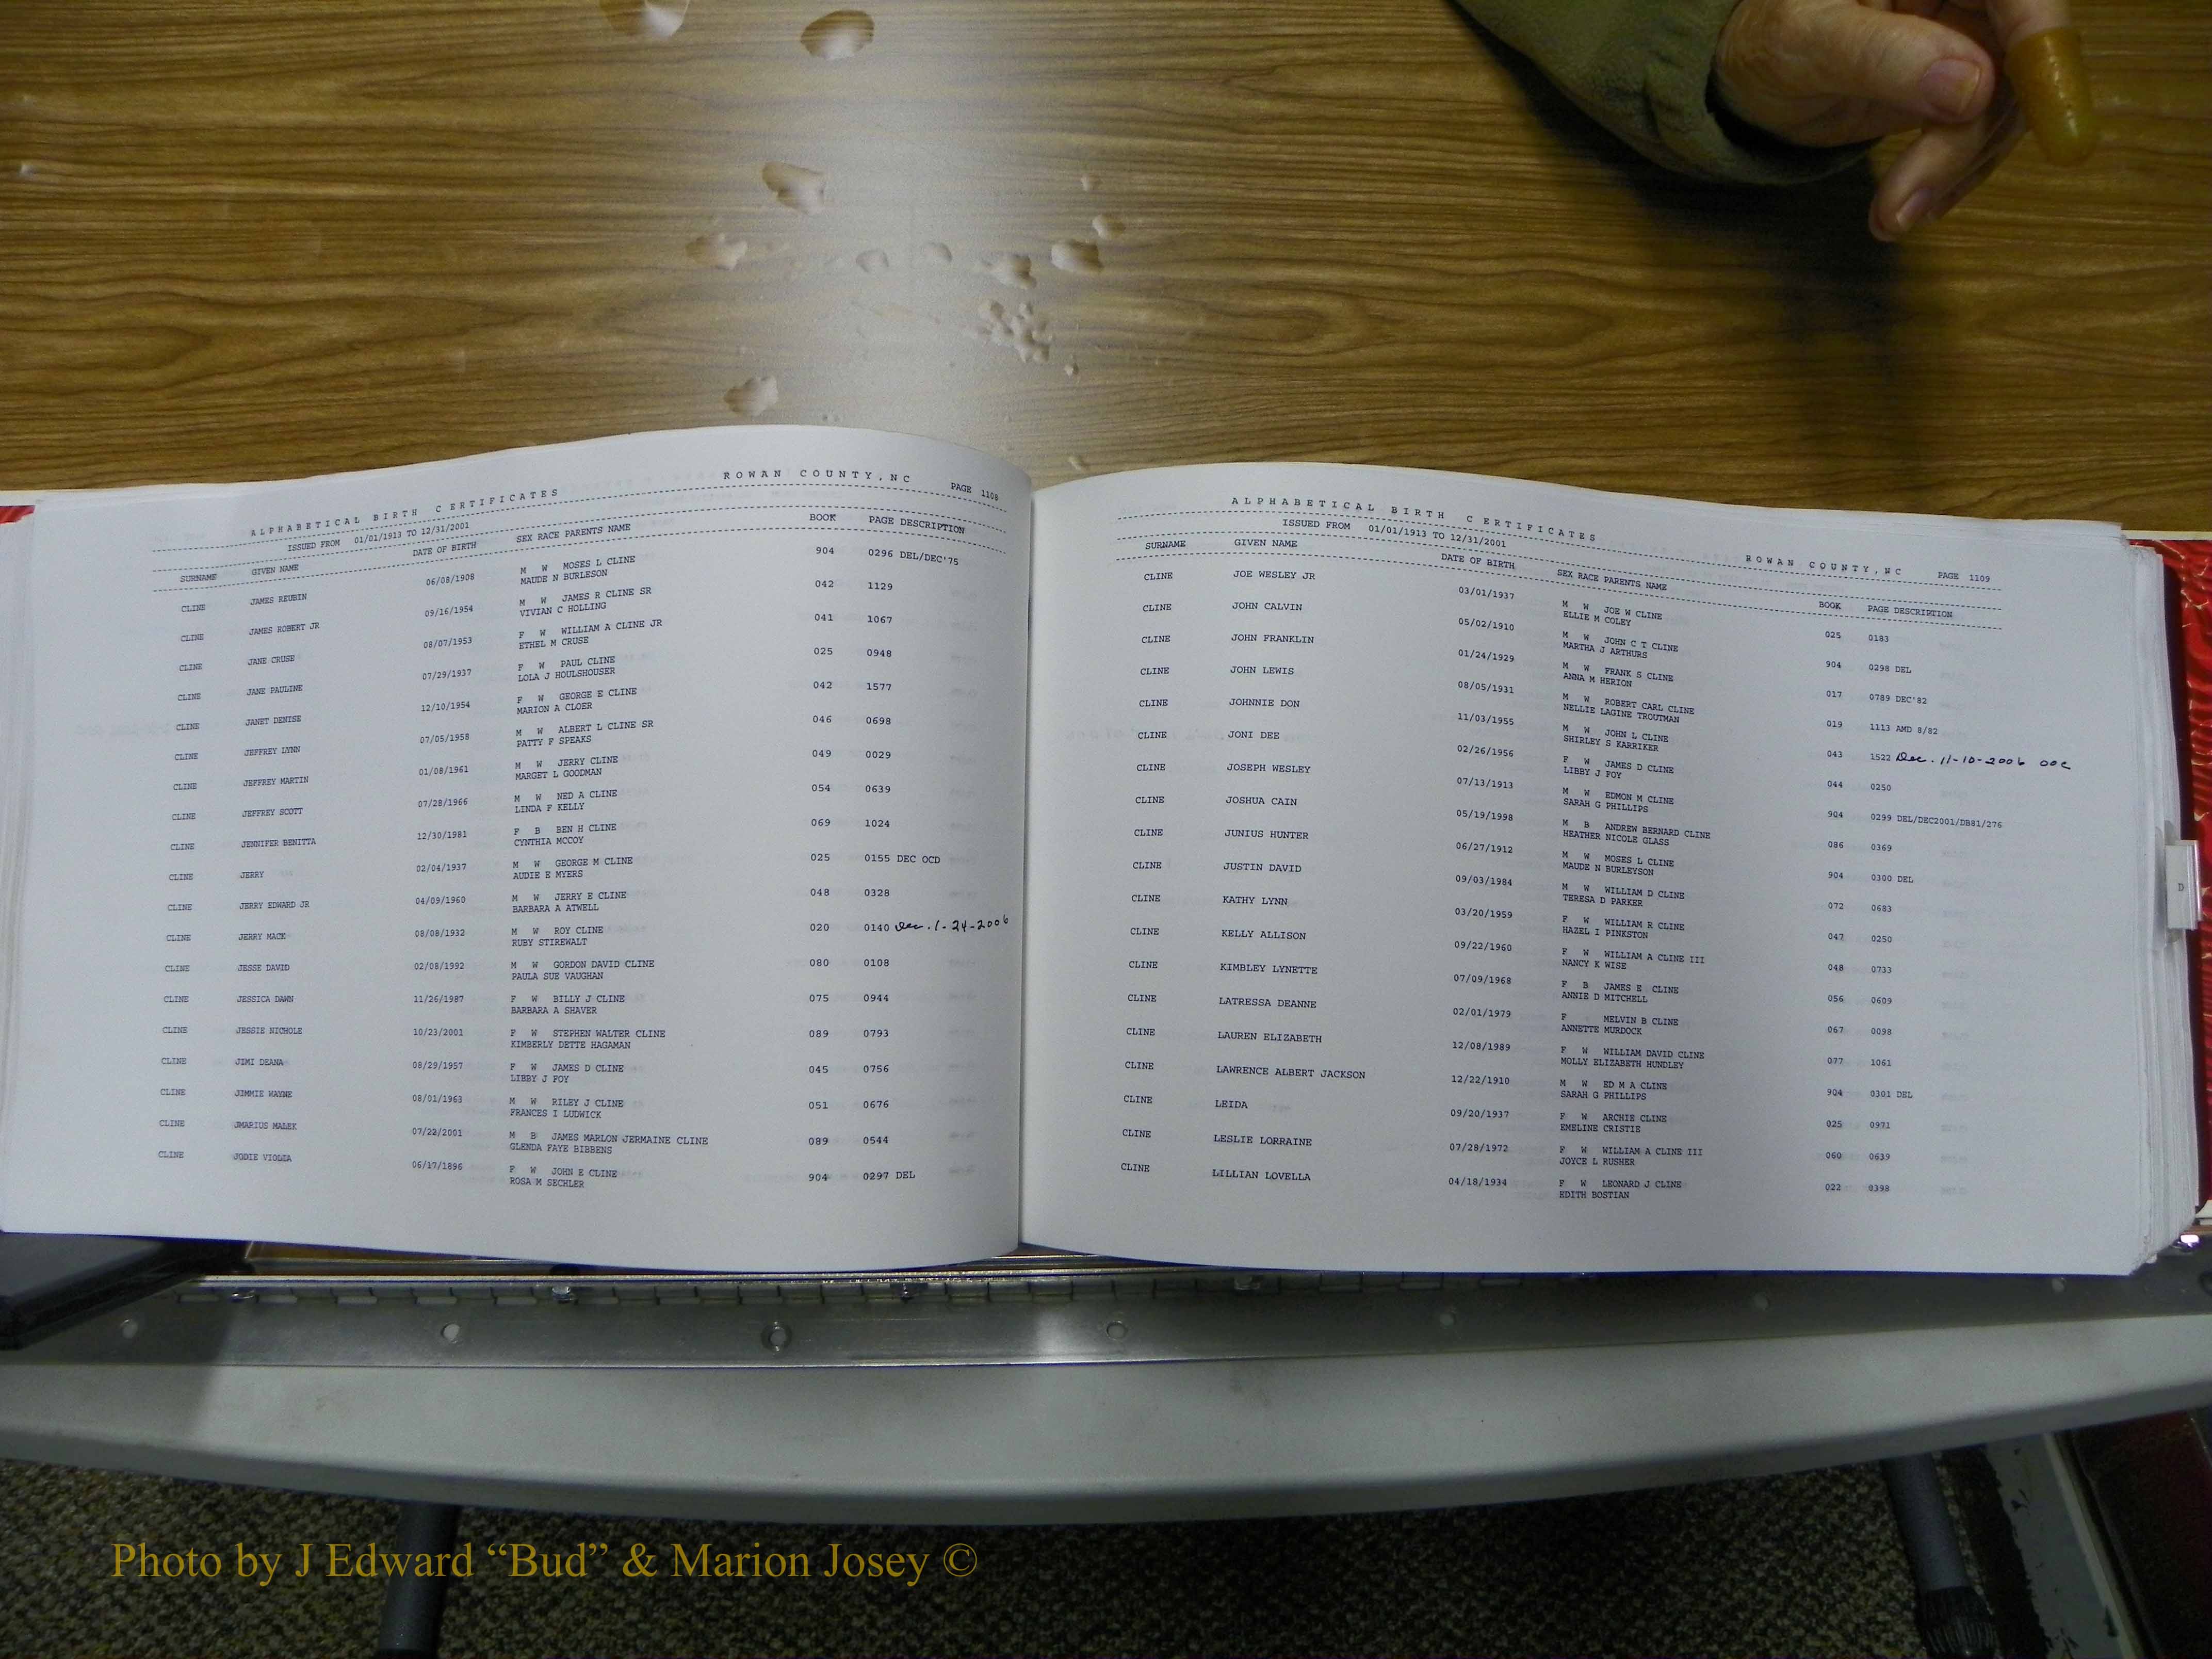 ROWAN COUNTY,NC PAGE 1108
ALPHABETICAL BIRTH CERTIFICATES
ISSUED FROM 01/01/1913 TO 12/31/2001
SURNAME GIVEN NAME DATE OF BIRTH SEX RACE PARENTS NAME BOOK PAGE DESCRIPTION
CLINE JAMES REUBIN 06/08/1908 M W MOSES L CLINE 904 0296 DEL/DEC'75
MAUDE N BURLESON
CLINE JAMES ROBERT JR 09/16/1954 M W JAMES R CLINE SR 042 1129
VIVIAN C HOLLING
CLINE JANE CRUSE 08/07/1953 F W WILLIAM A CLINE JR 041 1067
ETHEL M CRUSE
CLINE JANE PAULINE 07/29/1937 F W PAUL CLINE 025 0948
LOLA J HOULSHOUSER
CLINE JANET DENISE 12/10/1954 F W GEORGE E CLINE 042 1577
MARION A CLOER
CLINE JEFFREY LYNN 07/05/1958 M W ALBERT L CLINE SR 046 0698
PATTY F SPEAKS
CLINE JEFFREY MARTIN 01/08/1961 M W JERRY CLINE 049 0029
MARGET L GOODMAN
CLINE JEFFREY SCOTT 07/28/1966 M W NED A CLINE 054 0639
LINDA F KELLY
CLINE JENNIFER BENITTA 12/30/1981 F B BEN H CLINE 069 1024
CYNTHIA MCCOY
CLINE JERRY 02/04/1937 M W GEORGE M CLINE 025 0155 DEC OCD
AUDIE E MYERS
CLINE JERRY EDWARD JR 04/09/1960 M W JERRY E CLINE 048 0328
BARBARA A ATWELL
CLINE JERRY MACK 08/08/1932 M W ROY CLINE 020 0140 Dec. 1-24-2006
RUBY STIREWALT
CLINE JESSE DAVID 02/08/1992 M W GORDON DAVID CLINE 080 0108
PAULA SUE VAUGHAN
CLINE JESSICA DAWN 11/26/1987 F W BILLY J CLINE 075 0944
BARBARA A SHAVER
CLINE JESSIE NICHOLE 10/23/2001 F W STEPHEN WALTER CLINE 089 0793
KIMBERLY DETTE HAGAMAN
CLINE JIMI DEANA 08/29/1957 F W JAMES D CLINE 045 0756
LIBBY J FOY
CLINE JIMMIE WAYNE 08/01/1963 M W RILEY J CLINE 051 0676
FRANCES I LUDWICK
CLINE JMARIUS MALEK 07/22/2001 M B JAMES MARLON JERMAINE CLINE 089 0544
GLENDA FAYE BIBBENS
CLINE JODIE VIOLIA 06/17/1896 F W JOHN E CLINE 904 0297 DEL
ROSA M SECHLER
ALPHABETICAL BIRTH CERTIFICATES
ROWAN COUNTY,NC PAGE 1109
ISSUED FROM 01/01/1913 TO 12/31/2001
SURNAME GIVEN NAME DATE OF BIRTH SEX RACE PARENTS NAME BOOK PAGE DESCRIPTION
CLINE JOE WESLEY JR 03/01/1937 M W JOE W CLINE 025 0183
ELLIE M COLEY
CLINE JOHN CALVIN 05/02/1910 M W JOHN C T CLINE 904 0298 DEL
MARTHA J ARTHURS
CLINE JOHN FRANKLIN 01/24/1929 M W FRANK S CLINE 017 0789 DEC'82
ANNA M HERION
CLINE JOHN LEWIS 08/05/1931 M W ROBERT CARL CLINE 019 1113 AMD 8/82
NELLIE LAGINE TROUTMAN
CLINE JOHNNIE DON 11/03/1955 M W JOHN L CLINE 043 1522 Dec. 11-10-2006 OOC
SHIRLEY S KARRIKER
CLINE JONI DEE 02/26/1956 F W JAMES D CLINE 044 0250
LIBBY J FOY
CLINE JOSEPH WESLEY 07/13/1913 M W EDMON M CLINE 904 0299 DEL/DEC2001/DB81/276
SARAH G PHILLIPS
CLINE JOSHUA CAIN 05/19/1998 M B ANDREW BERNARD CLINE 086 0369
HEATHER NICOLE GLASS
CLINE JUNIUS HUNTER 06/27/1912 M W MOSES L CLINE 904 0300 DEL
MAUDE N BURLEYSON
CLINE JUSTIN DAVID 09/03/1984 M W WILLIAM D CLINE 072 0683
TERESA D PARKER
CLINE KATHY LYNN 03/20/1959 F W WILLIAM R CLINE 047 0250
HAZEL I PINKSTON
CLINE KELLY ALLISON 09/22/1960 F W WILLIAM A CLINE III 048 0733
NANCY K WISE
CLINE KIMBLEY LYNETTE 07/09/1968 F B JAMES E CLINE 056 0609
ANNIE D MITCHELL
CLINE LATRESSA DEANNE 02/01/1979 F MELVIN B CLINE 067 0098
ANNETTE MURDOCK
CLINE LAUREN ELIZABETH 12/08/1989 F W WILLIAM DAVID CLINE 077 1061
MOLLY ELIZABETH HUNDLEY
CLINE LAWRENCE ALBERT JACKSON 12/22/1910 M W ED M A CLINE 904 0301 DEL
SARAH G PHILLIPS
CLINE LEIDA 09/20/1937 F W ARCHIE CLINE 025 0971
EMELINE CRISTIE
CLINE LESLIE LORRAINE 07/28/1972 F W WILLIAM A CLINE III 060 0639
JOYCE L RUSHER
CLINE LILLIAN LOVELLA 04/18/1934 F W LEONARD J CLINE 022 0398
EDITH BOSTIAN
D
Photo by J Edward “Bud” & Marion Josey ©